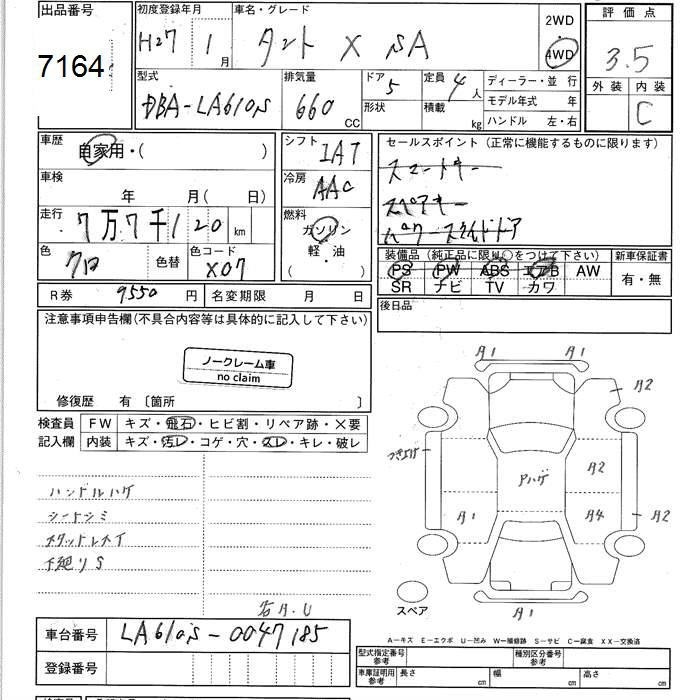 出品番号
7164
初度登録年月
H27 1月
車名・グレード
タント X SA
2WD
4WD
評価点
3.5
外装 内装
C
型式
DBA-LA610S
排気量
660 CC
ドア 5
形状
定員 4人
積載 kg
ディーラー・並行
モデル年式 年
ハンドル 左・右
車歴
自家用・( )
車検
年 月( 日)
走行
7万7千120 km
色
クロ
色替
色コード
X07
シフト
IAT
冷房
AAC
燃料
ガソリン
軽・油
( )
セールスポイント(正常に機能するものに限ります)
スマートキー
スペアキー
パワースライドドア
装備品(純正品に限り○をつけて下さい)
PS PW ABS エアB AW
SR ナビ TV カワ
新車保証書
有・無
R券 9550円
名変期限 月 日
後日品
注意事項申告欄(不具合内容等は具体的に記入して下さい)
ノークレーム車
no claim
修復歴 有〔箇所 〕
検査員
記入欄
FW キズ・飛石・ヒビ割・リペア跡・×要
内装 キズ・汚レ・コゲ・穴・スレ・キレ・破レ
ハンドルハゲ
シートシミ
スタッドレスタイ
下廻りS
右A.U
A1 A1
A2
A2
アハゲ
A1
A4
A2
A1
スペア
A-キズ E-エクボ U-凹み W-補修跡 S-サビ C-腐食 XX-交換済
車台番号
LA610S-0047185
登録番号
型式指定番号
参考
種別区分番号
参考
車庫証明用
参考
長さ cm
幅 cm
高さ cm